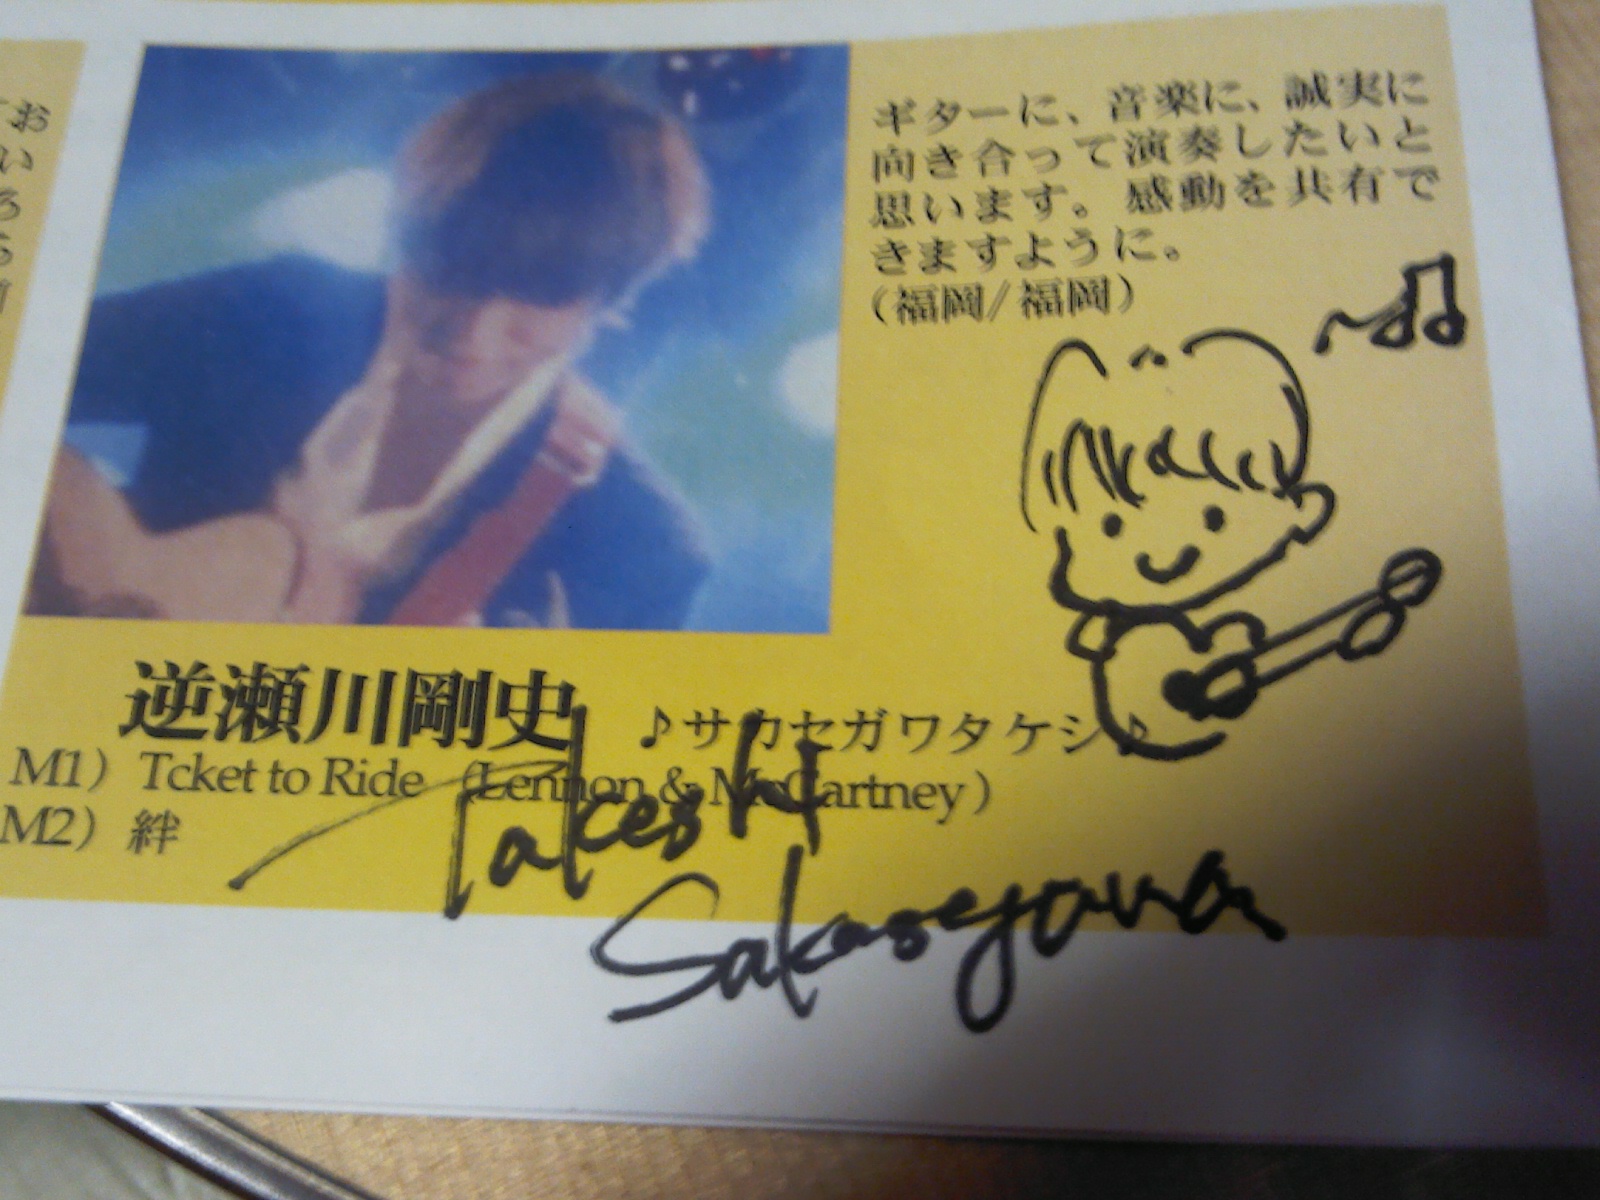 ギターに、音楽に、誠実に
向き合って演奏したいと
思います。感動を共有で
きますように。
(福岡/福岡)
逆瀬川剛史 ♪サカセガワタケシ♪
M1) Tcket to Ride (Lennon & McCartney)
M2) 絆
Takeshi
Sakasegawa